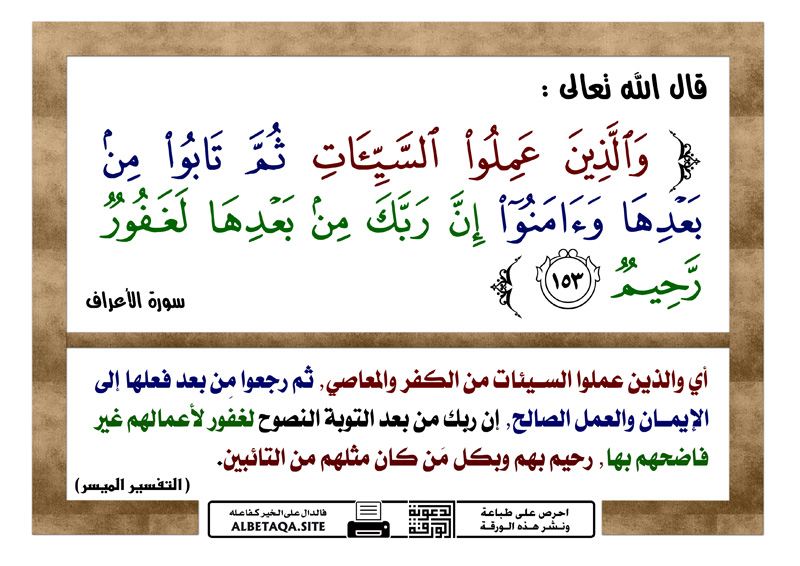 قال الله تعالى :
﴿ وَٱلَّذِينَ عَمِلُوا۟ ٱلسَّيِّـَٔاتِ ثُمَّ تَابُوا۟ مِنۢ
بَعْدِهَا وَءَامَنُوٓا۟ إِنَّ رَبَّكَ مِنۢ بَعْدِهَا لَغَفُورٌ
رَّحِيمٌ ١٥٣ ﴾
سورة الأعراف
أي والذين عملوا السـيئات من الكفر والمعاصي, ثم رجعوا مِن بعد فعلها إلى
الإيمــان والعمل الصالح, إن ربك من بعد التوبة النصوح لغفور لأعمالهم غير
فاضحهم بها, رحيم بهم وبكل مَن كان مثلهم من التائبين.
( التفسير الميسر )
احرص على طباعة
ونشر هذه الورقة
الورقة الدعوية
فالدال على الخير كفاعله
ALBETAQA.SITE